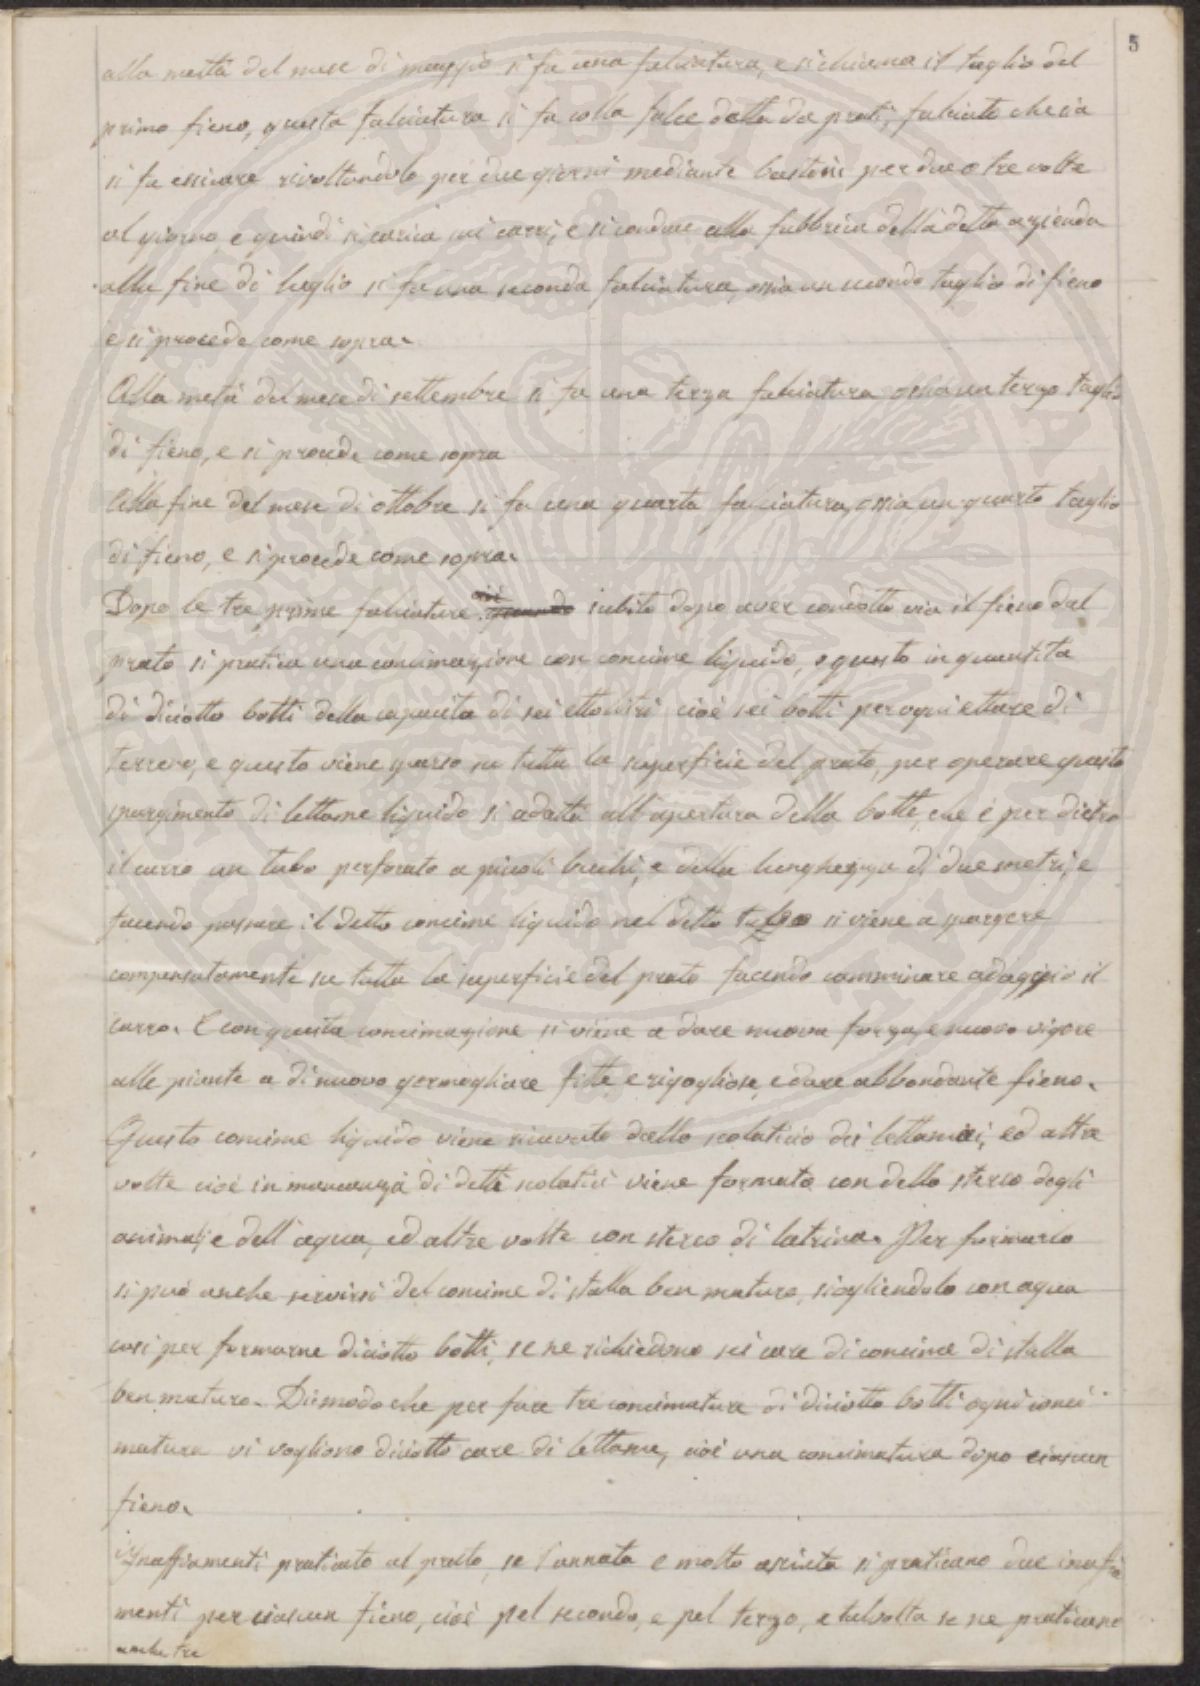 5
alla metà del mese di maggio si fa una falciatura, e si chiama il taglio del
primo fieno, questa falciatura si fa colla falce detta da prati, falciato che sia
si fa essicare rivoltandolo per due giorni mediante bastoni per due o tre volte
al giorno, e quindi si carica sui carri, e si conduce alla fabbrica della detta azienda
alla fine di luglio si fa una seconda falciatura, ossia un secondo taglio di fieno
e si procede come sopra.
Alla metà del mese di settembre si fa una terza falciatura ossia un terzo taglio
di fieno, e si procede come sopra
Alla fine del mese di ottobre si fa una quarta falciatura, ossia un quarto taglio
di fieno, e si procede come sopra.
Dopo le tre prime falciature cioè subito dopo aver condotto via il fieno dal
prato si pratica una concimazione con concime liquido, e questo in quantità
di diciotto botti della capacità di sei ettolitri cioè sei botti per ogni ettare di
terreno, e questo viene sparso su tutta la superficie del prato, per operare questo
spargimento di lettame liquido si adatta all'apertura della botte, che è per dietro
il carro un tubo perforato a piccoli buchi, e della lunghezza di due metri, e
facendo passare il detto concime liquido nel detto tubo si viene a spargere
compensatamente su tutta la superficie del prato facendo camminare adaggio il
carro. E con questa concimazione si viene a dare nuova forza, e nuovo vigore
alle piante a di nuovo germogliare fitte, e rigogliose, e dare abbondante fieno.
Questo concime liquido viene ricavato dallo scolaticio dei lettamai, ed altre
volte cioè in mancanza di detti scolatici viene formato con dello sterco degli
animali, e dell'aqua, ed altre volte con sterco di latrina. Per formarlo
si può anche servirsi del concime di stalla ben maturo, sciogliendolo con aqua
così per formarne diciotto botti, se ne richiedono sei care di concime di stalla
ben maturo. Dimodo che per fare tre concimature di diciotto botti ogni conci
matura vi vogliono diciotto care di lettame, cioè una concimatura dopo ciascun
fieno.
Inaffiamenti praticato al prato, se l'annata e molto asciuta si praticano due inaffia
menti per ciascun fieno, cioè pel secondo, e pel terzo, e talvolta se ne praticano
anche tre